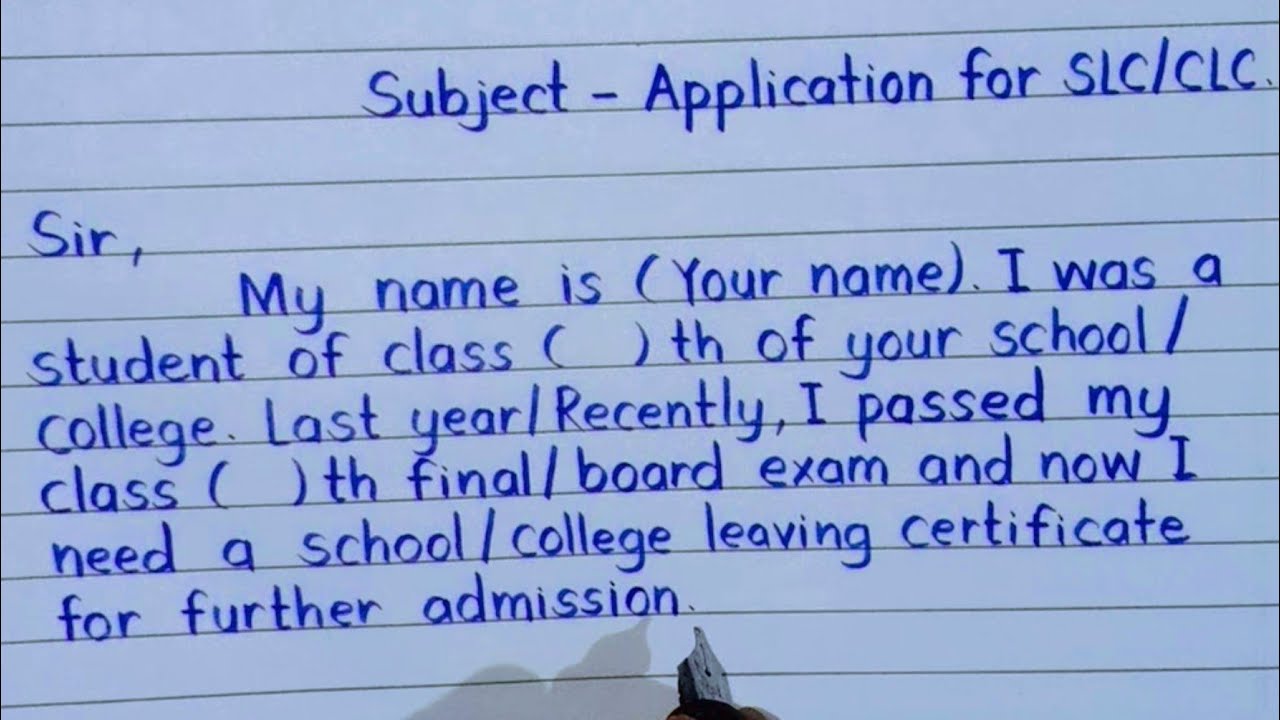 Subject - Application for SLC/CLC.
Sir,
My name is (Your name). I was a
student of class ( )th of your school/
college. Last year/Recently, I passed my
class ( )th final/board exam and now I
need a school/college leaving certificate
for further admission.